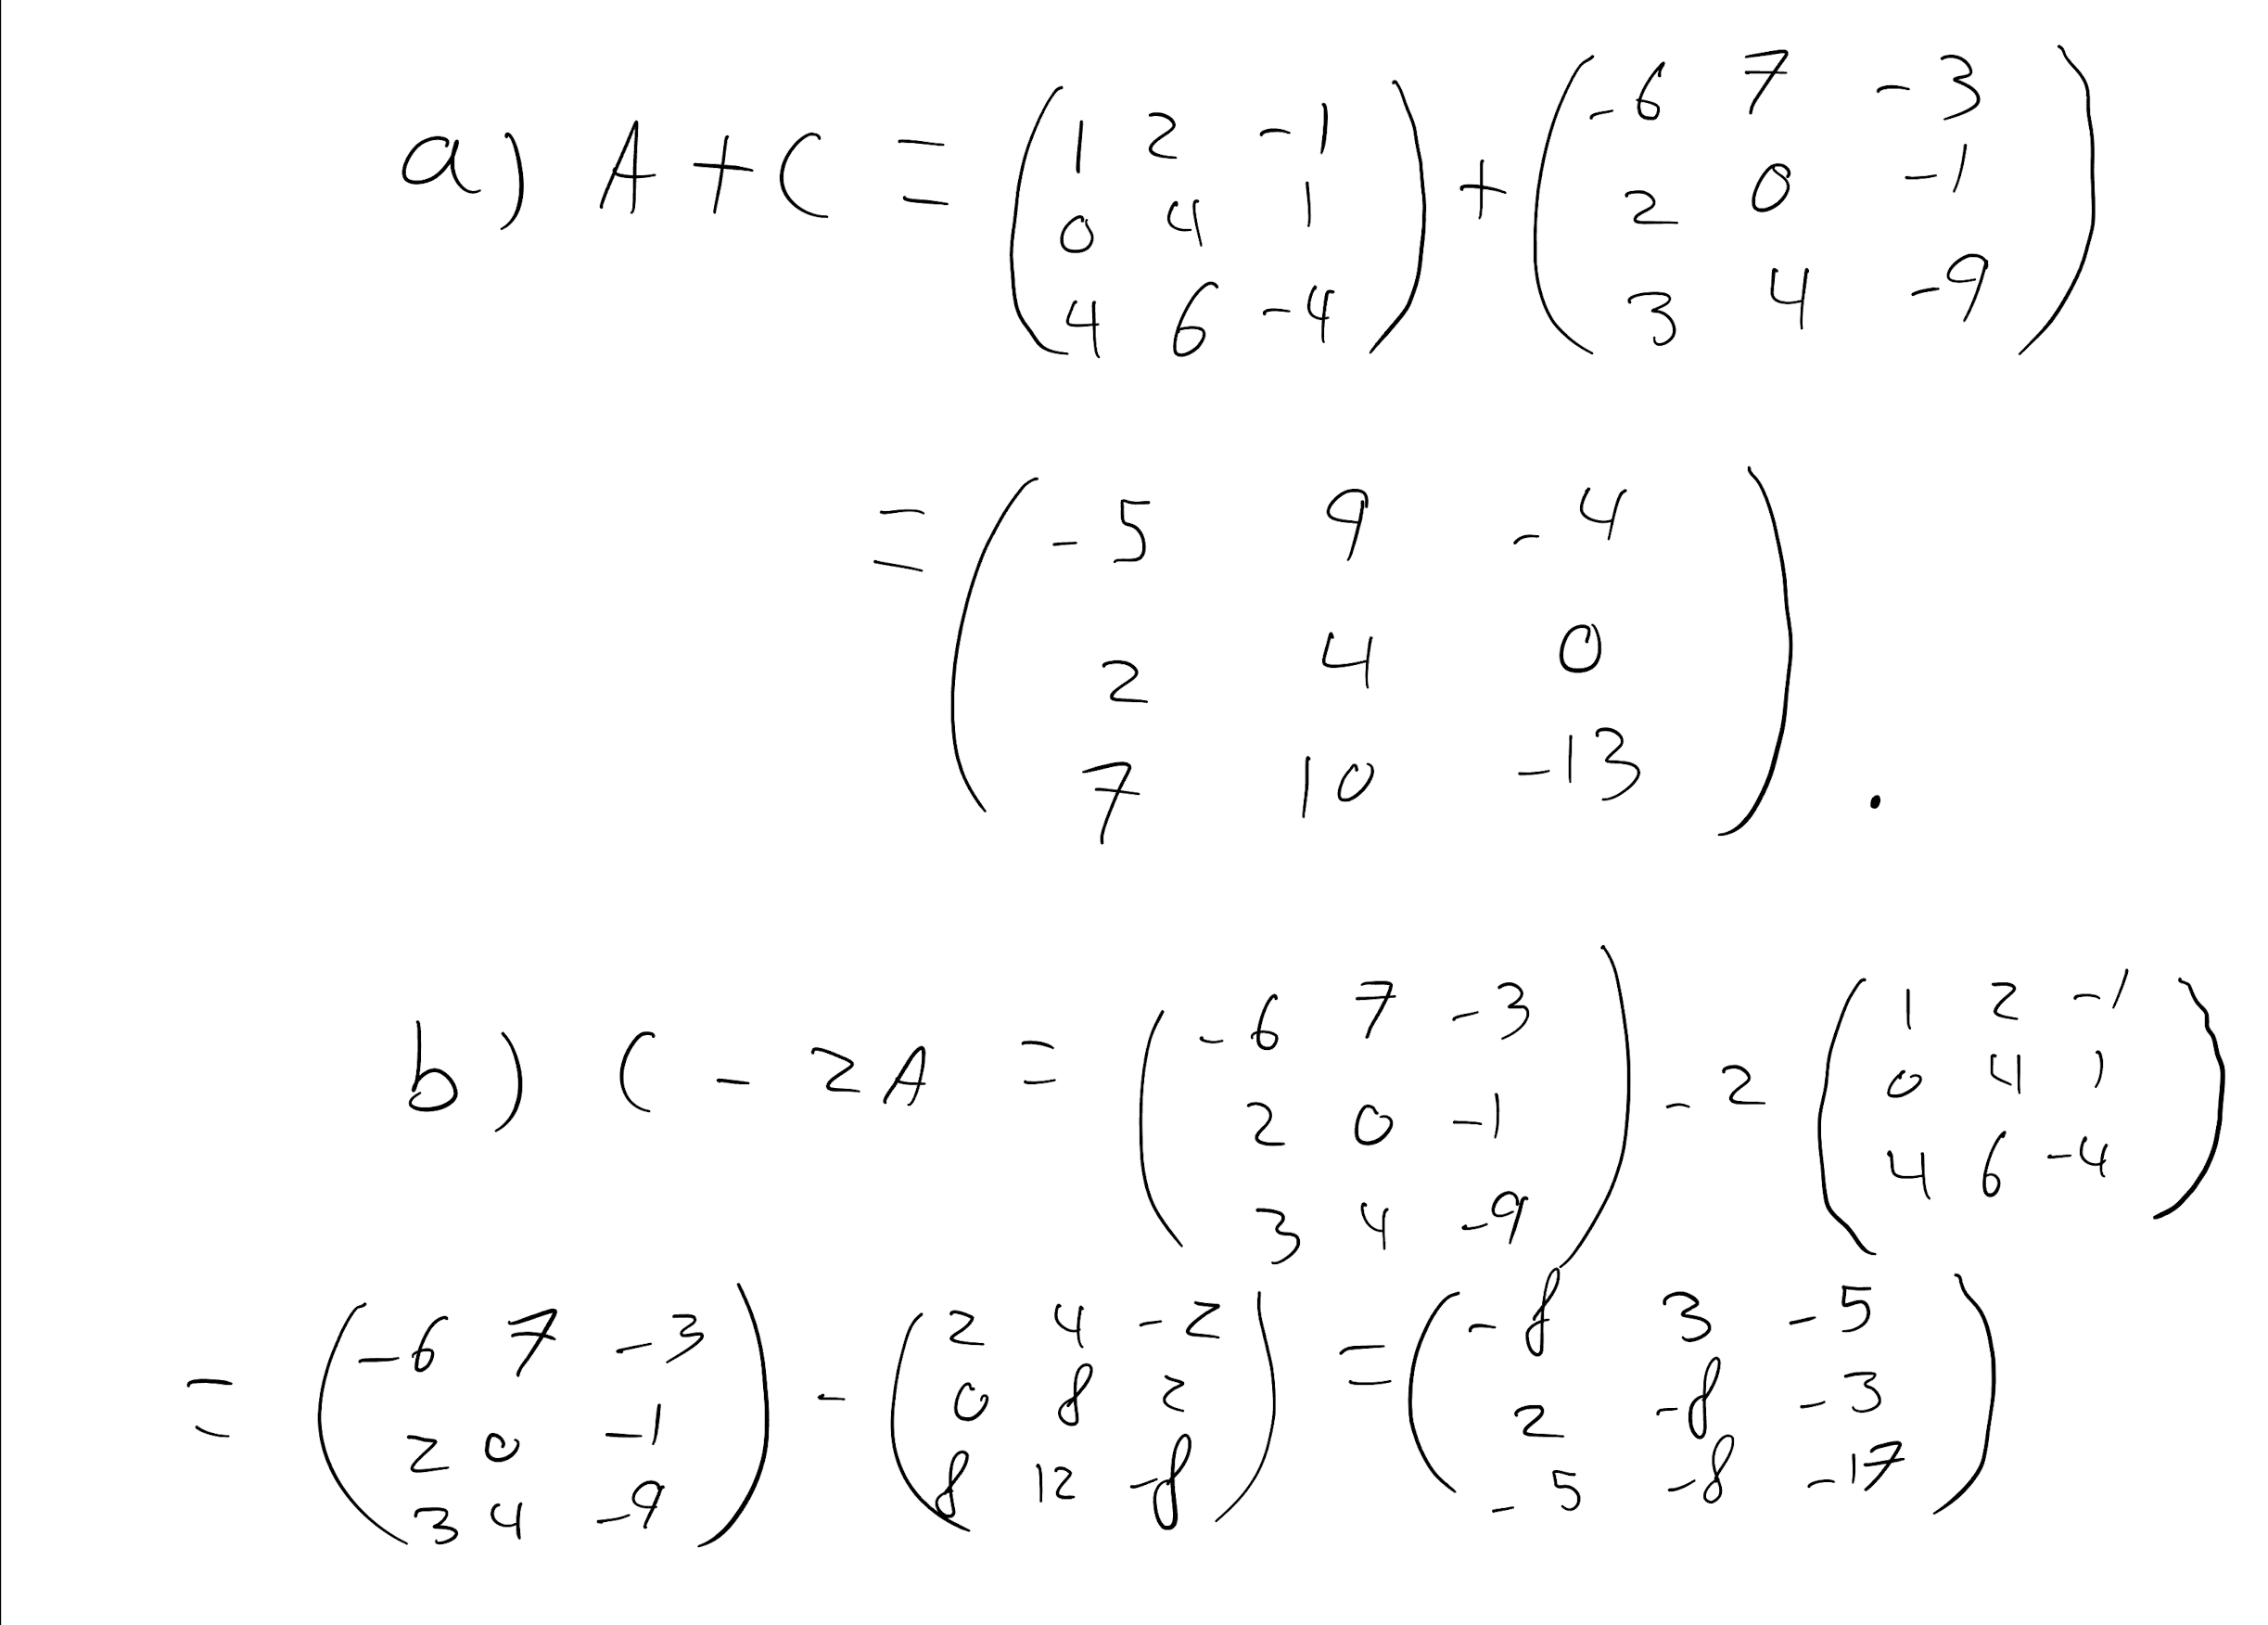 a) A + C = ( 1 2 -1 ; 0 4 1 ; 4 6 -4 ) + ( -6 7 -3 ; 2 0 -1 ; 3 4 -9 )
= ( -5 9 -4 ; 2 4 0 ; 7 10 -13 ) .
b) C - 2A = ( -6 7 -3 ; 2 0 -1 ; 3 4 -9 ) - 2 ( 1 2 -1 ; 0 4 1 ; 4 6 -4 )
= ( -6 7 -3 ; 2 0 -1 ; 3 4 -9 ) - ( 2 4 -2 ; 0 8 2 ; 8 12 -8 ) = ( -8 3 -5 ; 2 -8 -3 ; -5 -8 -17 )